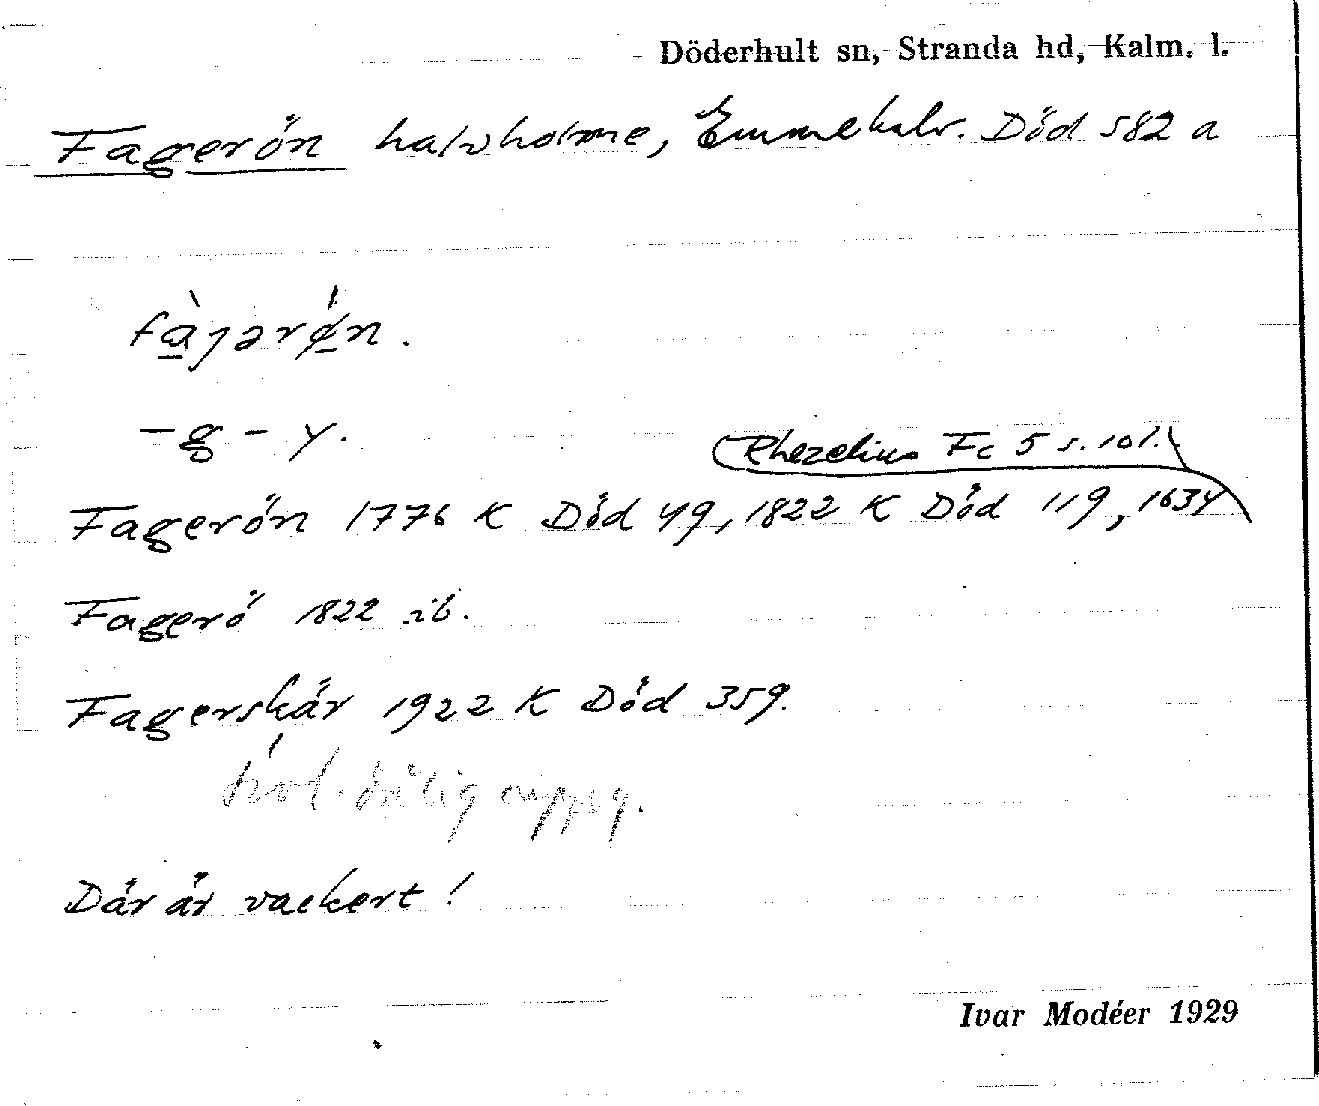 Döderhult sn, Stranda hd, Kalm. l.
Fagerön halvholme, Emmekalv. Död 582 a
fàjərǿn.
-g- y.
Rhezelius Fc 5 s. 101.
Fagerön 1776 K Död 49, 1822 K Död 119, 1634
Fagerö 1822 ib.
Fagerskär 1922 K Död 359.
trol. dålig uppg.
Där är vackert!
Ivar Modéer 1929